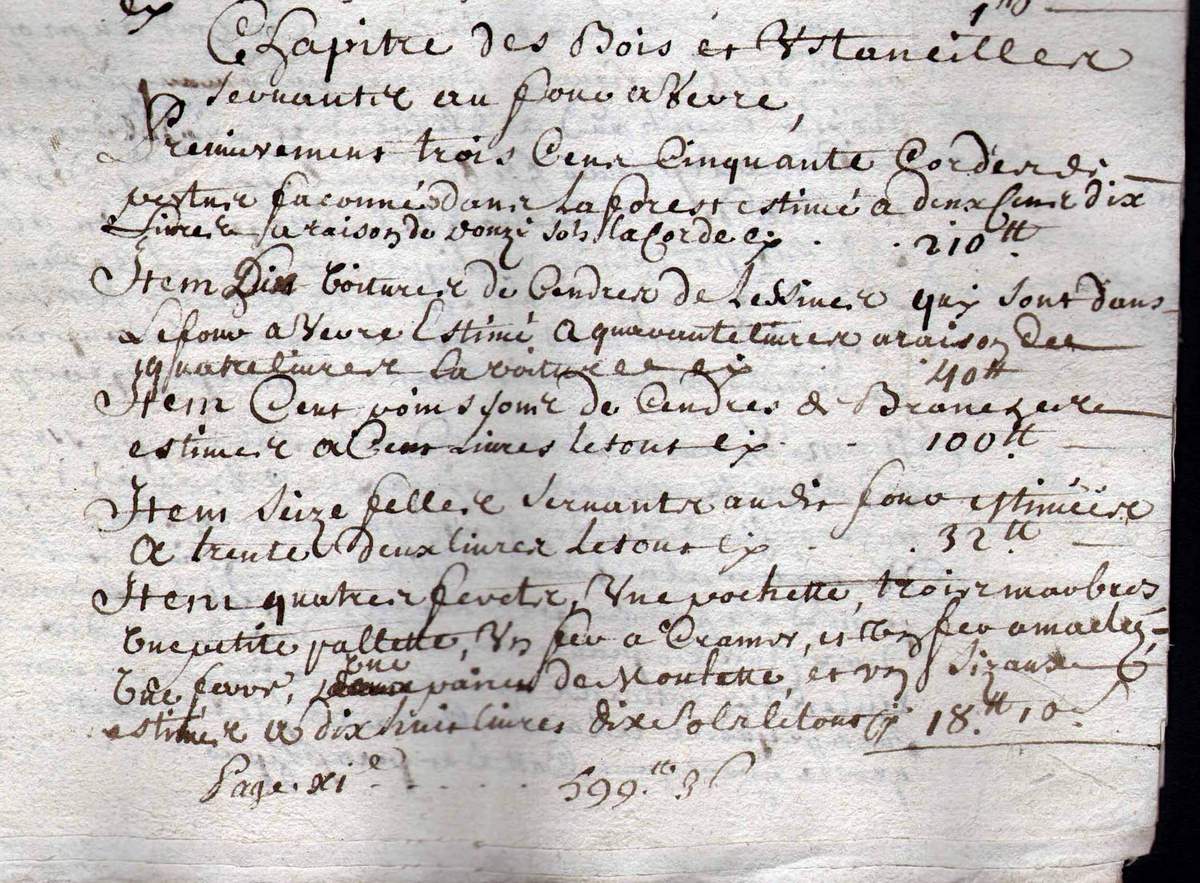 Chapitre des Bois et Ustancilles
servants au four a Verre,
Premierement trois Cens Cinquante Cordes de
façonnés dans La forest estimé a deux Cens dix
Livres a raison de douze sols la Corde cy . . 210 ₶
Item Dix Voitures de Cendres de Lessives quy sont dans
Le four a Verre Estimé a quarante livres a raison de
quatre livres La voiture cy 40 ₶
Item Cent de Cendres de
estimés a Cent Livres le tout cy . . 100 ₶
Item seize felles servants au dit four estimées
a trente deux livres Le tout cy . . 32 ₶
Item quatres ferets, Une pochette, trois marbres
Une petite pallette, Un fer a Cramer, et Un fer a
Une ferre, Une paire de Moulette, et un Sizaux
estimés a dix huit livres dix Sols le tout cy 18 ₶ 10 s
Page xi e . . . . . 599 ₶ 3 s